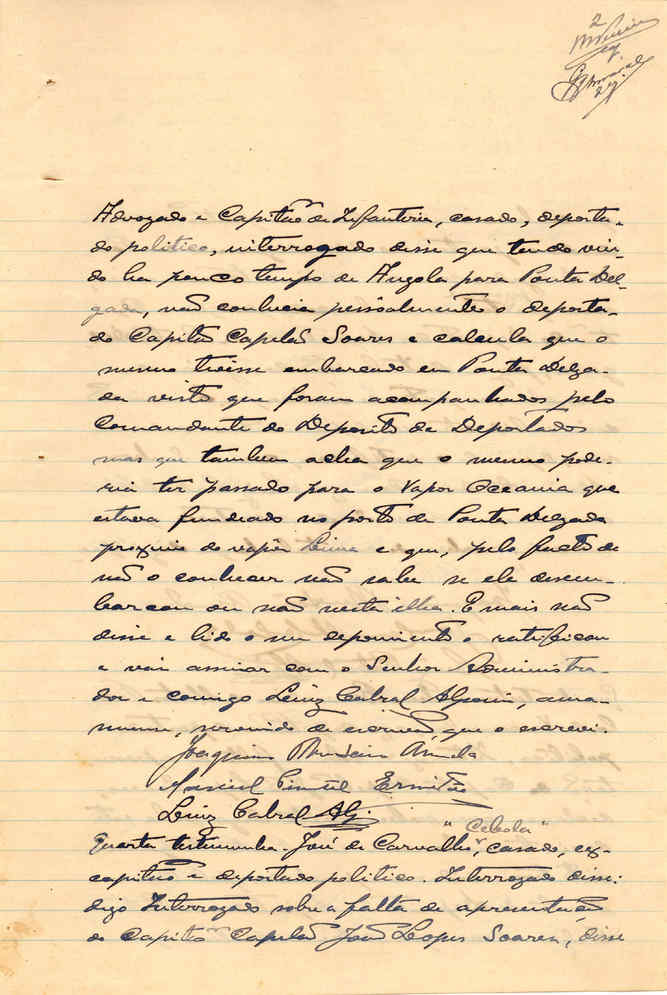 2
Advogado e Capitão de Infantaria, casado, deporta-
do politico, interrogado disse que tendo vin-
do ha pouco tempo de Angola para Ponta Del-
gada, não conhecia pessoalmente o deporta-
do Capitão Capelão Soares e calcula que o
mesmo tivesse embarcado em Ponta Delga-
da visto que foram acompanhados pelo
Comandante do Deposito de Deportados
mas que tambem acha que o mesmo pode-
ria ter passado para o Vapor Oceania que
estava fundeado no porto de Ponta Delgada
proximo do vapor Lima e que, pelo facto de
não o conhecer não sabe se ele desem-
barcou ou não nesta ilha. E mais não
disse e lido o seu depoimento o ratificou
e vai assinar com o Senhor Administra-
dor e comigo Luiz Cabral, ama-
nuense, servindo de escrivão, que o escrevi.
Joaquim
Manuel Ermitão
Luiz Cabral
"Cebola"
Quarta testemunha. José de Carvalho, casado, ex-
capitão e deportado politico. Interrogado disse:
digo Interrogado sobre a falta de apresentação
do Capitão Capelão João Lopes Soares, disse